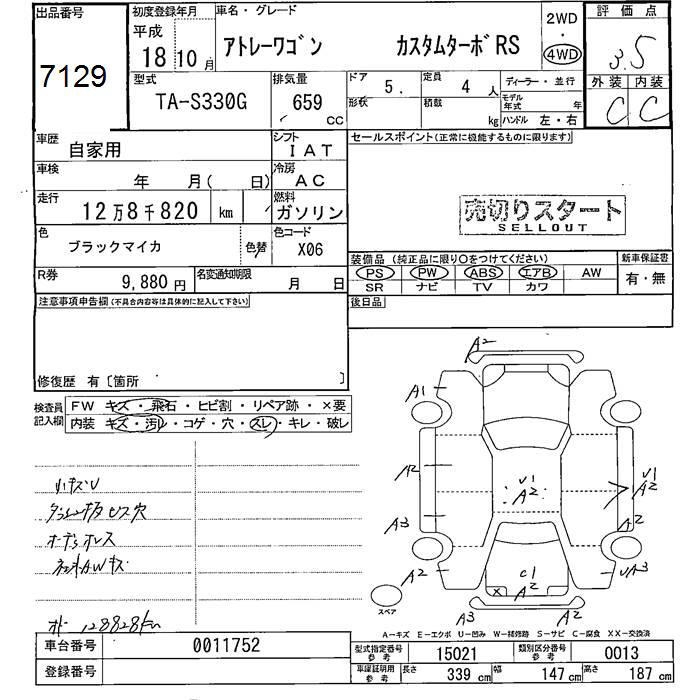 出品番号
7129
初度登録年月
平成
18 10 月
車名・グレード
アトレーワゴン カスタムターボRS
2WD
・
4WD
評価点
3.5
型式
TA-S330G
排気量
659
CC
ドア 5.
定員 4 人
ディーラー・並行
形状
積載 kg
モデル年式 年
ハンドル 左・右
外装 内装
C C
車歴
自家用
シフト
I AT
セールスポイント(正常に機能するものに限ります)
車検
年 月( 日)
冷房
AC
走行
12万8千820 km
燃料
ガソリン
売切りスタート
SELLOUT
色
ブラックマイカ
色替
色コード
X06
装備品(純正品に限り○をつけてください)
新車保証書
PS PW ABS エアB AW
有・無
SR ナビ TV カワ
R券
9,880 円
名変通知期限
月 日
後日品
注意事項申告欄(不具合内容等は具体的に記入して下さい)
修復歴 有〔箇所 〕
検査員記入欄
FW キズ・飛石・ヒビ割・リペア跡・×要
内装 キズ・汚レ・コゲ・穴・スレ・キレ・破レ
小キズU
ダッシュ板ビス穴
オーディオレス
オド 128828km
A2
A1
A2
A3
A2
U1
A2
U1
A2
A2
UA3
C1
× A2
A3
A2
スペア
A-キズ E-エクボ U-凹み W-補修跡 S-サビ C-腐食 XX-交換済
車台番号
0011752
登録番号
型式指定番号 参考
15021
類別区分番号 参考
0013
車庫証明用 参考
長さ 339 cm
幅 147 cm
高さ 187 cm